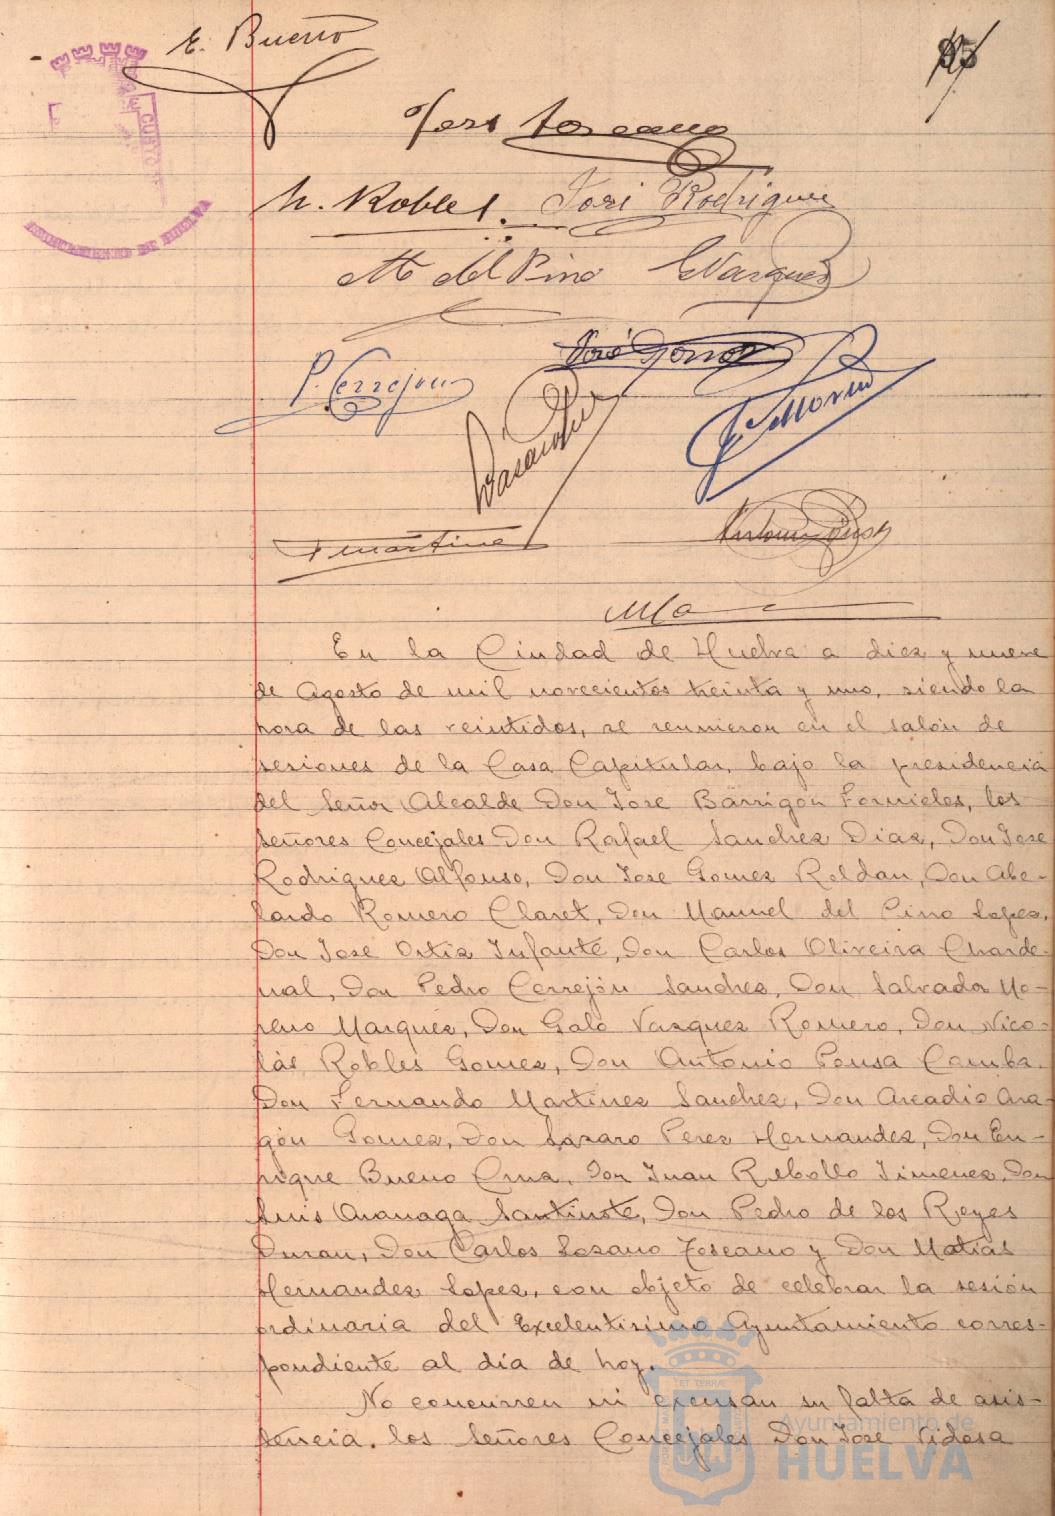 E. Bueno
José Toscano
N. Robles. José Rodriguez
M del Pino GVazquez
P. Cerrejon
F Martinez
AYUNTAMIENTO DE HUELVA
En la Ciudad de Huelva a diez y nueve
de Agosto de mil novecientos treinta y uno, siendo la
hora de las veintidos, se reunieron en el salón de
sesiones de la Casa Capitular, bajo la presidencia
del Señor Alcalde Don Jose Barrigón Fornieles, los
señores Concejales Don Rafael Sanchez Diaz, Don Jose
Rodriguez Alfonso, Don Jose Gomez Roldan, Don Abe-
lardo Romero Claret, Don Manuel del Pino Lopez,
Don Jose Ortiz Infante, Don Carlos Oliveira Charde-
nal, Don Pedro Cerrejón Sanchez, Don Salvador Mo-
reno Marquez, Don Galo Vazquez Romero, Don Nico-
lás Robles Gomez, Don Antonio Pousa Camba,
Don Fernando Martinez Sanchez, Don Arcadio Ara-
gón Gomez, Don Lazaro Perez Hernandez, Don En-
rique Bueno Cruz, Don Juan Rebollo Jimenez, Don
Luis Ordnaga Don Pedro de los Reyes
Duran, Don Carlos Lozano Toscano y Don Matias
Hernandez Lopez, con objeto de celebrar la sesión
ordinaria del Excelentisimo Ayuntamiento corres-
pondiente al día de hoy.
No concurren ni excusan su falta de asis-
tencia, los Señores Concejales Don Jose Tidosa
Ayuntamiento de
HUELVA